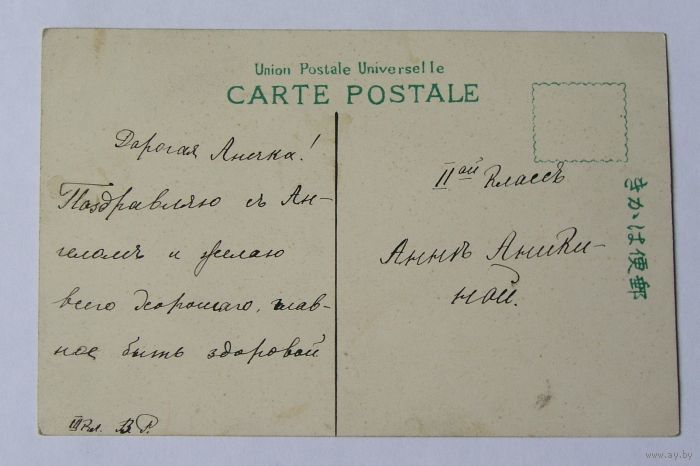 Union Postale Universelle
CARTE POSTALE
Дорогая Аничка!
Поздравляю съ Ан-
геломъ и желаю
всего хорошаго, глав-
ное быть здоровой
III кл. В. Р.
II ой Классъ
Аннѣ Аники-
ной.
きかは便郵
www.ay.by